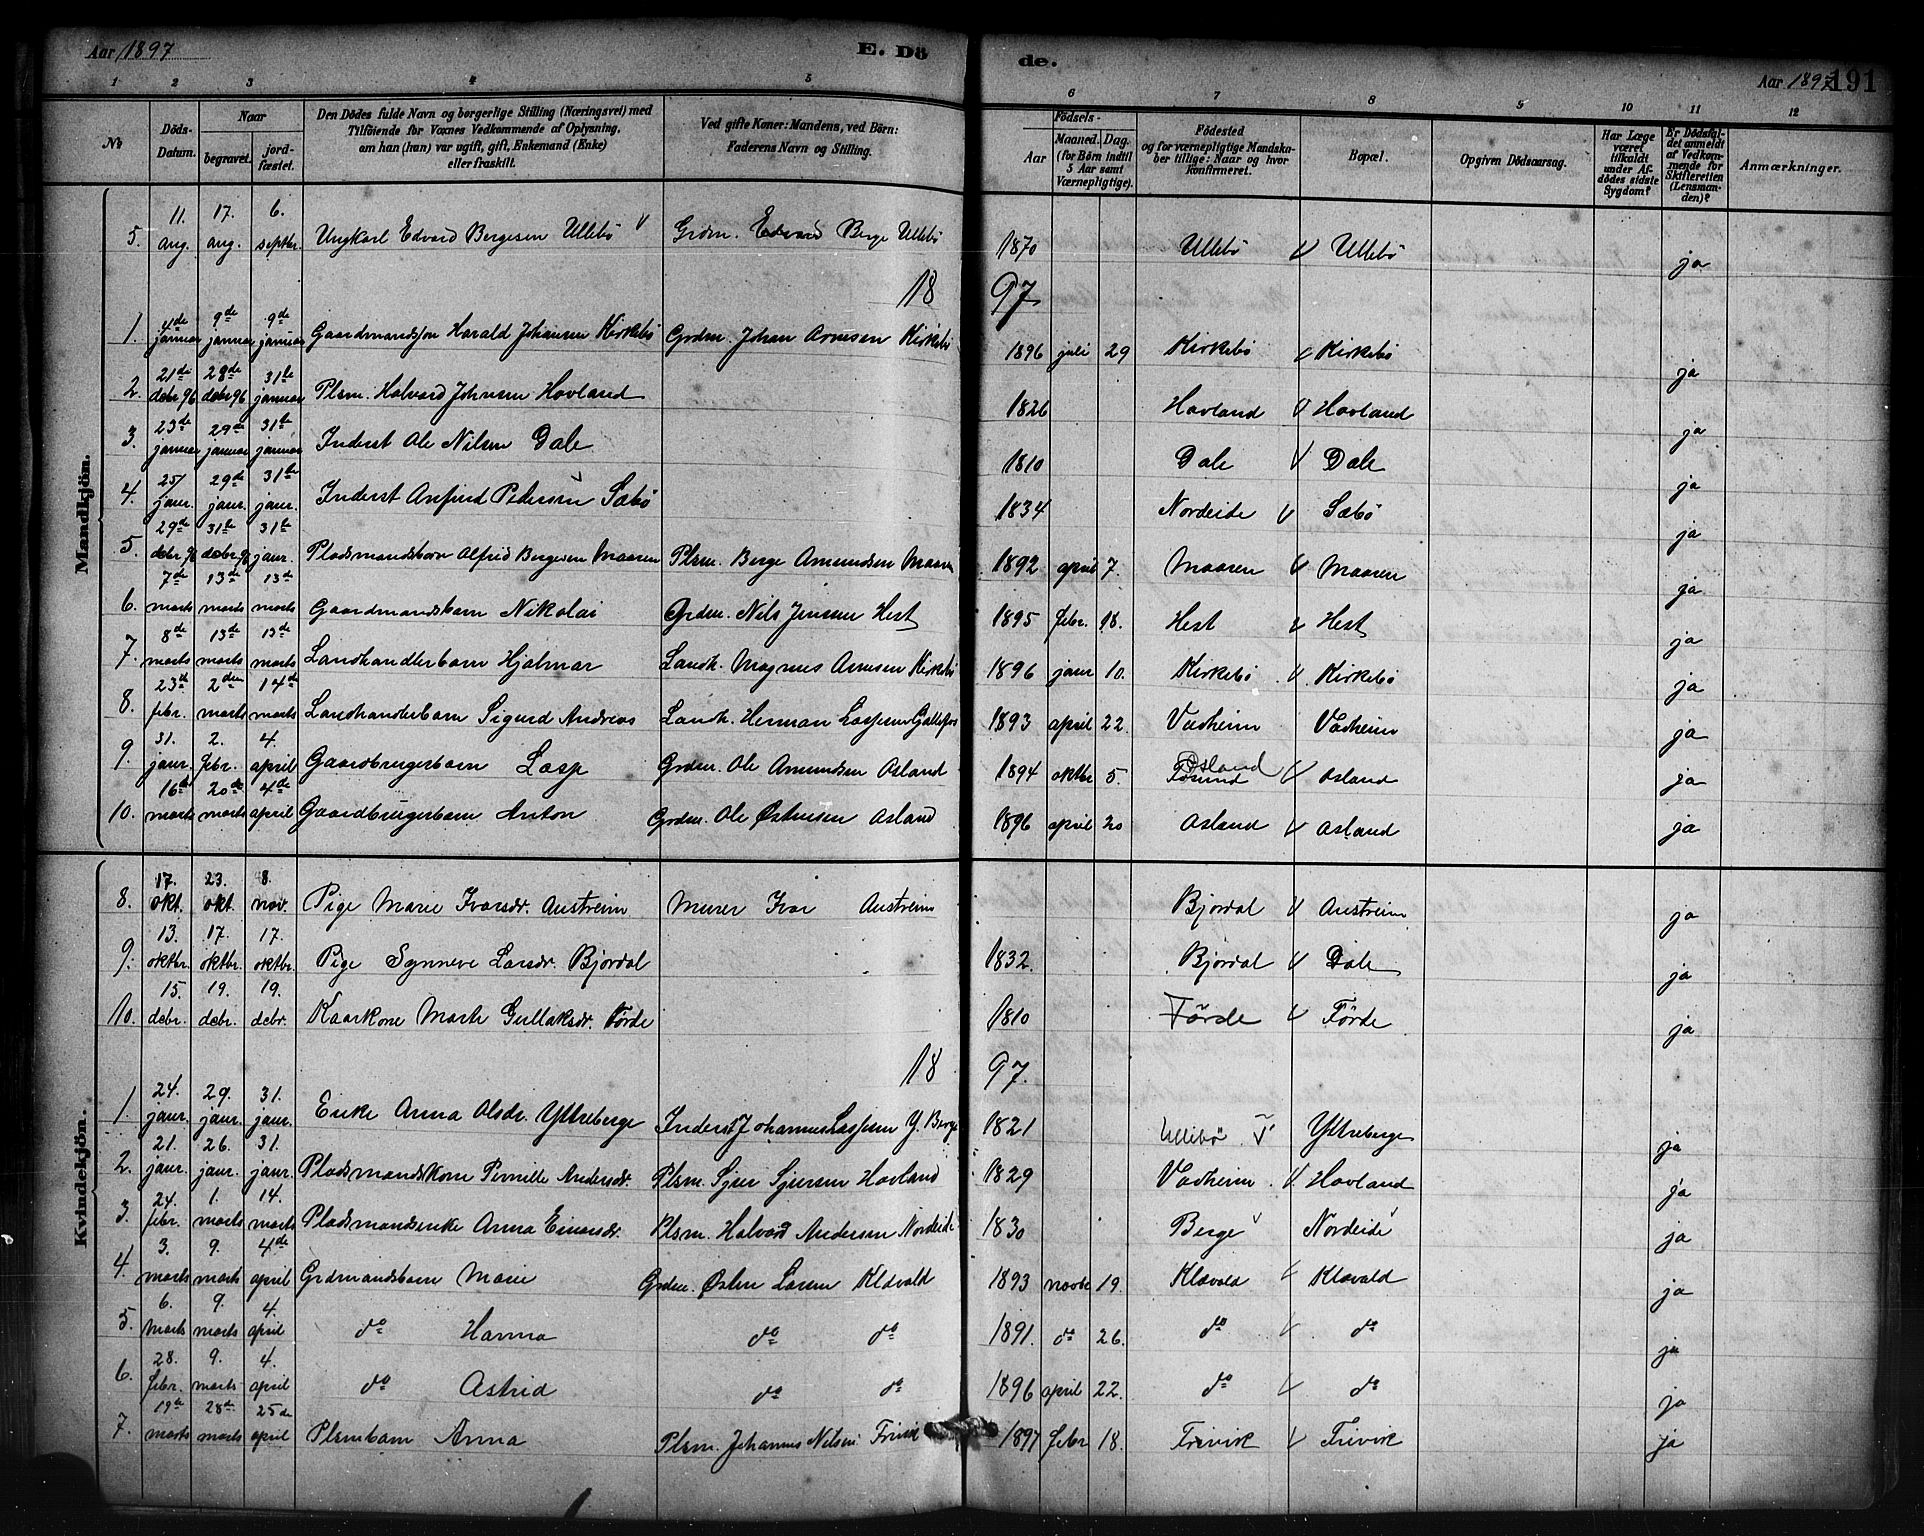 Aar 1897 E. Dö de. Aar 1897 191
1 2 3 4 5 6 7 8 9 10 11 12
No Döds-Datum. Naar begravet. jordfæstet. Den Dödes fulde Navn og borgerlige Stilling (Næringsvei) med Tilföiende for Voxnes Vedkommende af Oplysning, om han (hun) var ugift, gift, Enkemand (Enke) eller fraskilt. Ved gifte Koner: Mandens, ved Börn: Faderens Navn og Stilling. Födsels- Aar Maaned. Dag. (for Börn indtil 5 Aar samt Værnepligtige). Födested og for værnepligtige Mandskaber tillige: Naar og hvor konfirmeret. Bopæl. Opgiven Dödsaarsag. Har Læge været tilkaldt under Afdödes sidste Sygdom? Er Dödsfaldet anmeldt af Vedkommende for Skifteretten (Lensmanden)? Anmærkninger.
Mandkjön.
5. 11. aug. 17. aug. 6. septbr. Ungkarl Edvard Bergesen Ullebö Grdm. Berge Ullebö 1870 Ullebö Ullebö ja
18 97
1. 4de januar 9de januar 9de januar Gaardmandssön Harald Johansen Kirkebö Grdm. Johan Arnesen Kirkebö 1896 juli 29 Kirkebö Kirkebö ja
2. 21de debr 96 28de debr 96 31te januar Plsm. Halvard Johnsen Hovland 1826 Hovland Hovland ja
3. 23de januar 29de januar 31te januar Inderst Ole Nilsen Dale 1810 Dale Dale ja
4. 25/ janr. 29de janr. 31te janr. Inderst Anfind Pedersen Sæbö 1834 Nordeide Sæbö ja
5. 29de debr 96 31te debr 96 31te janr. Pladsmandsbarn Alfred Bergesen Maaren Plsm. Berge Amundsen Maaren 1892 april 7. Maaren Maaren ja
6. 7de marts 13de marts 13de marts Gaardmandsbarn Nikolai Grdm. Nils Jensen Hest 1895 febr. 18. Hest Hest ja
7. 8de marts 13de marts 13de marts Landhandlerbarn Hjalmar Landh. Magnus Arnesen Kirkebö 1896 janr 10. Kirkebö Kirkebö ja
8. 23de febr. 2den marts 14de marts Landhandlerbarn Sigurd Andreas Landh. Herman Lassesen 1893 april 22. Vadheim Vadheim ja
9. 31. janr. 2. febr. 4. april Gaardbrugerbarn Lasse Grdm. Ole Amundsen Osland 1894 oktbr 5. Osland Osland ja
10. 16de marts 20de marts 4de april Gaardbrugerbarn Anton Grdm. Ole Østensen Osland 1896 april 20 Osland Osland ja
Kvindekjön.
8. 17. okt. 23. okt. 8. nov. Pige Marie Ivarsdr. Austreim Murer Ivar Austreim Bjordal Austreim ja
9. 13. oktbr. 17. oktbr. 17. oktbr. Pige Synneve Larsdr. Bjordal 1832. Bjordal Dale ja
10. 15. debr. 19. debr. 19. debr. Kaarkone Marte Gullaksdr. Förde 1810 Förde Förde ja
18 97.
1. 24. janr. 29. janr. 31. janr. Enke Anna Olsdr. Yttreberge Inderst Johannes Lassesen Y. Berge 1821 Ullebö Yttreberge ja
2. 21. janr. 26. janr. 31. janr. Pladsmandskone Pernille Andersdr. Plsm. Sjur Sjursen Hovland 1829 Vadheim Hovland ja
3. 24. febr. 1. marts 14. marts Pladsmandsenke Anna Einarsdr. Plsm. Halvard Andersen Nordeide 1830 Berge Nordeide ja
4. 3. marts 9. marts 4de april Grdmandsbarn Marie Grdm. Østen Larsen Klævold 1893 novbr 19. Klævold Klævold ja
5. 6. marts 9. marts 4. april do Hanna do do 1891. do 26. do do ja
6. 28. febr. 9. marts 4. april do Astrid do do 1896 april 22. do do ja
7. 19de marts 28de marts 25de april Plsmbarn Anna Plsm. Johannes Nilsen Trivik 1897 febr 18. Trivik Trivik ja